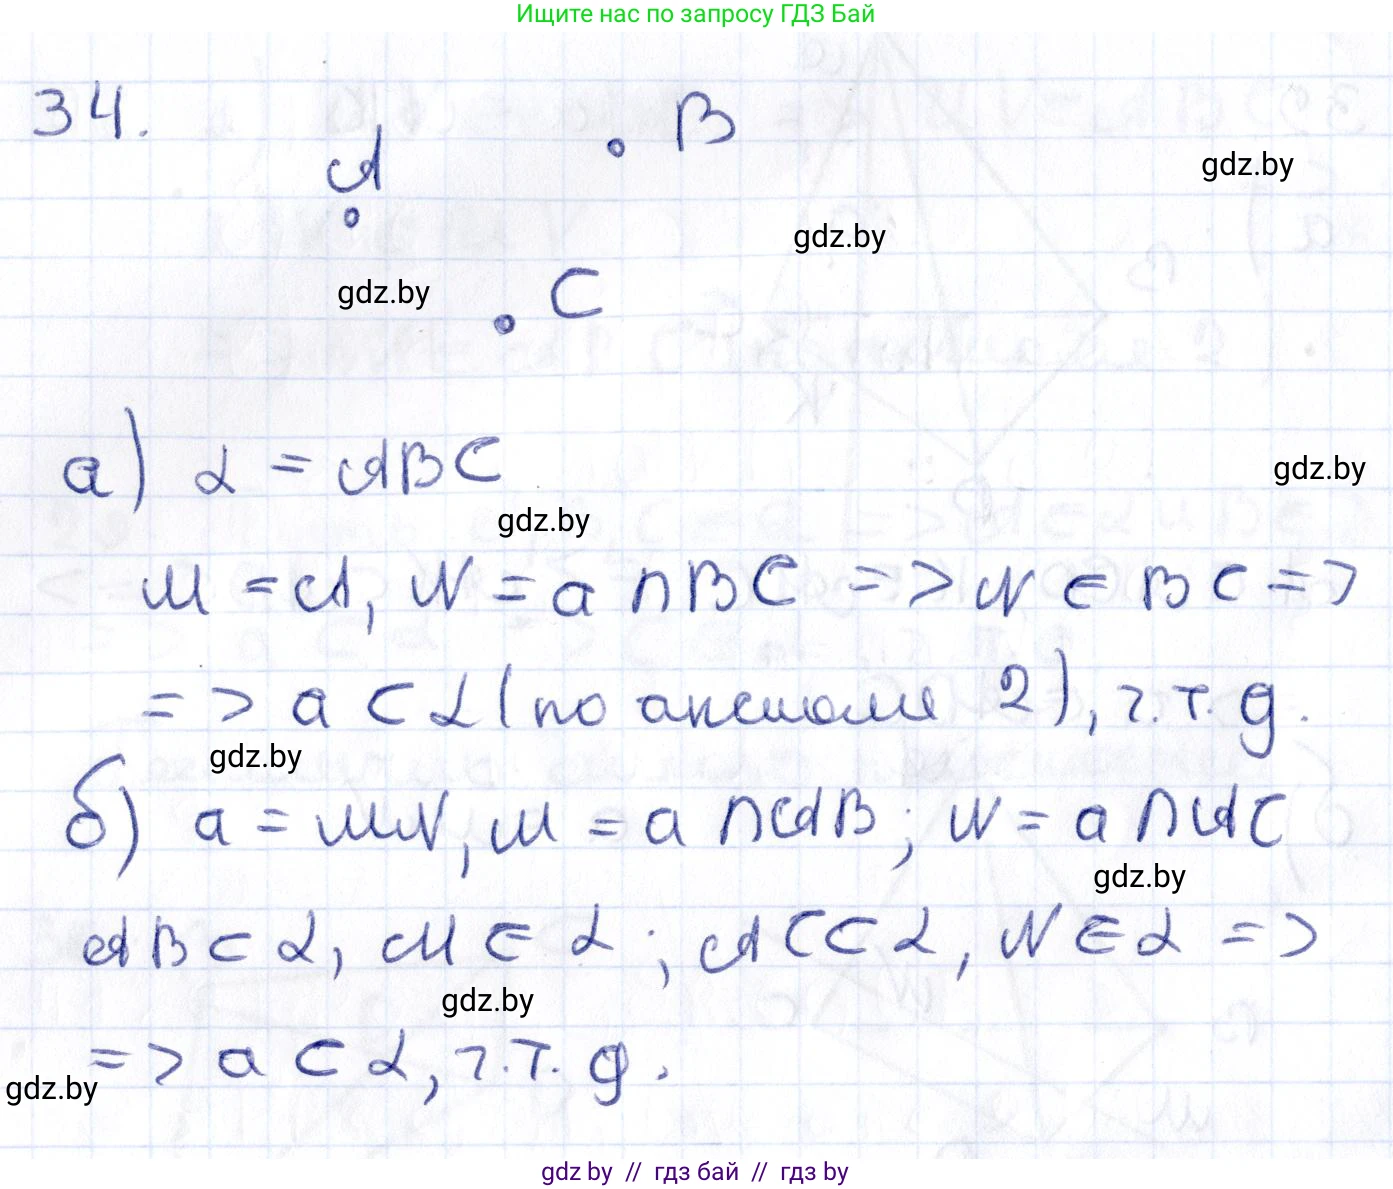 Ищите нас по запросу ГДЗ Бай
34.
A
B
gdz.by
gdz.by
gdz.by
C
а) α = ABC
gdz.by
gdz.by
M = A, N = a ∩ BC => N ∈ BC =>
=> a ⊂ α (по аксиоме 2), ч.т.д.
gdz.by
б) a = MN, M = a ∩ AB; N = a ∩ AC
gdz.by
AB ⊂ α, M ∈ α; AC ⊂ α, N ∈ α =>
gdz.by
=> a ⊂ α, ч.т.д.
gdz.by
gdz by // гдз бай // гдз by